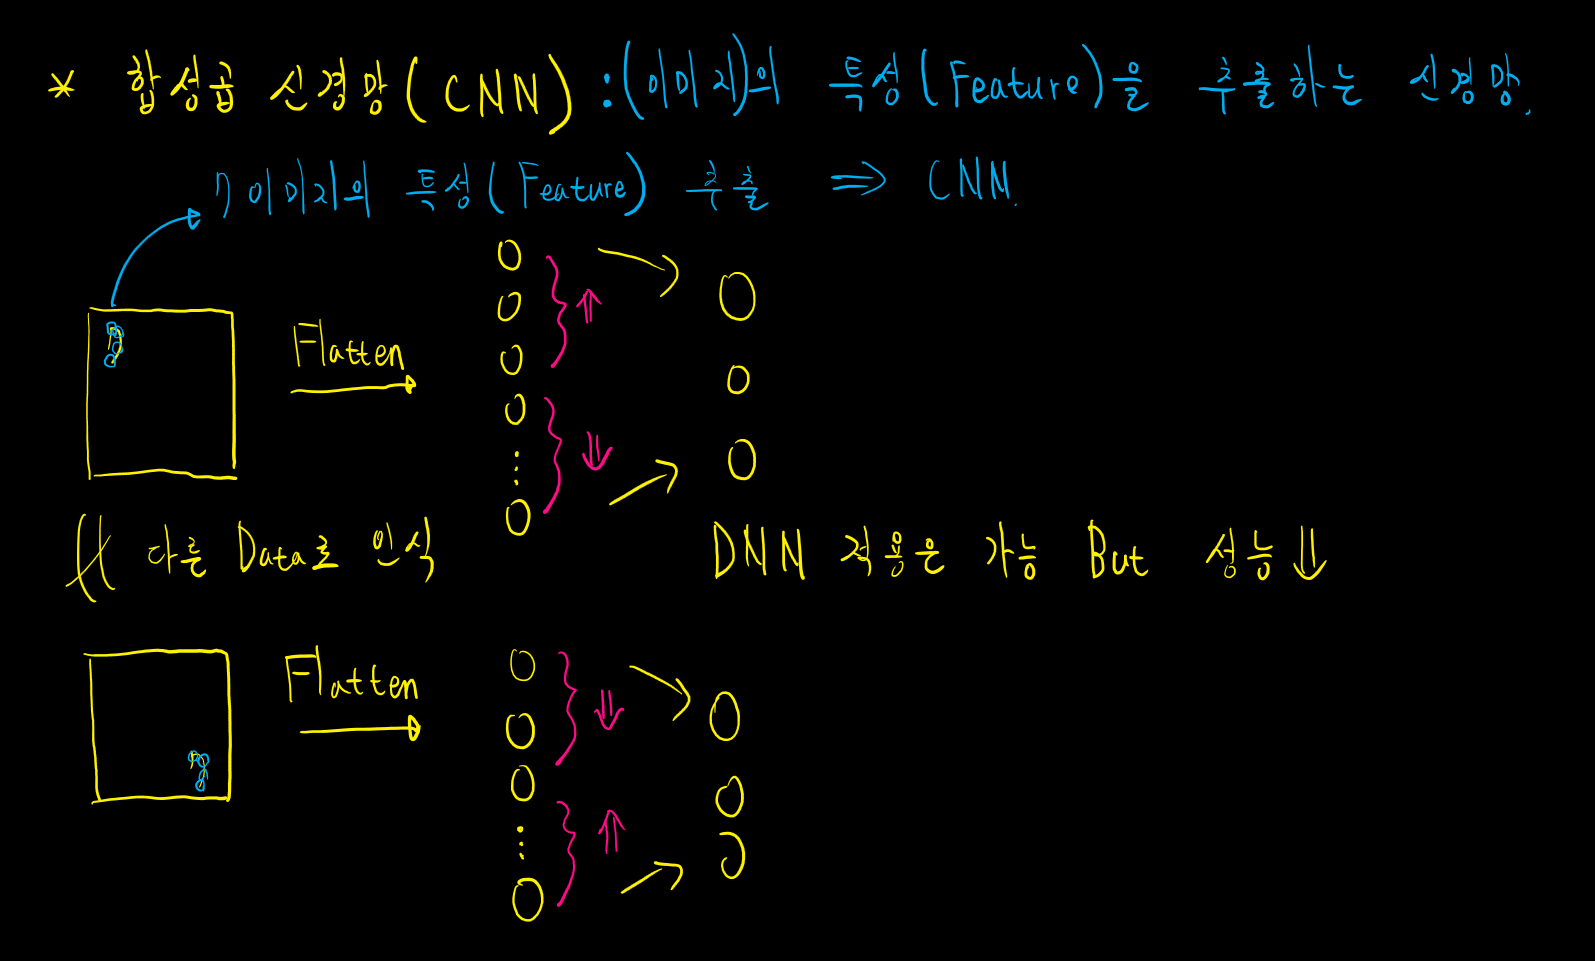 * 합성곱 신경망(CNN) : (이미지)의 특성(Feature)을 추출하는 신경망.
7 이미지의 특성(Feature) 추출 ⇒ CNN.
Flatten
다른 Data로 인식
DNN 적용은 가능 But 성능 ⇓
Flatten